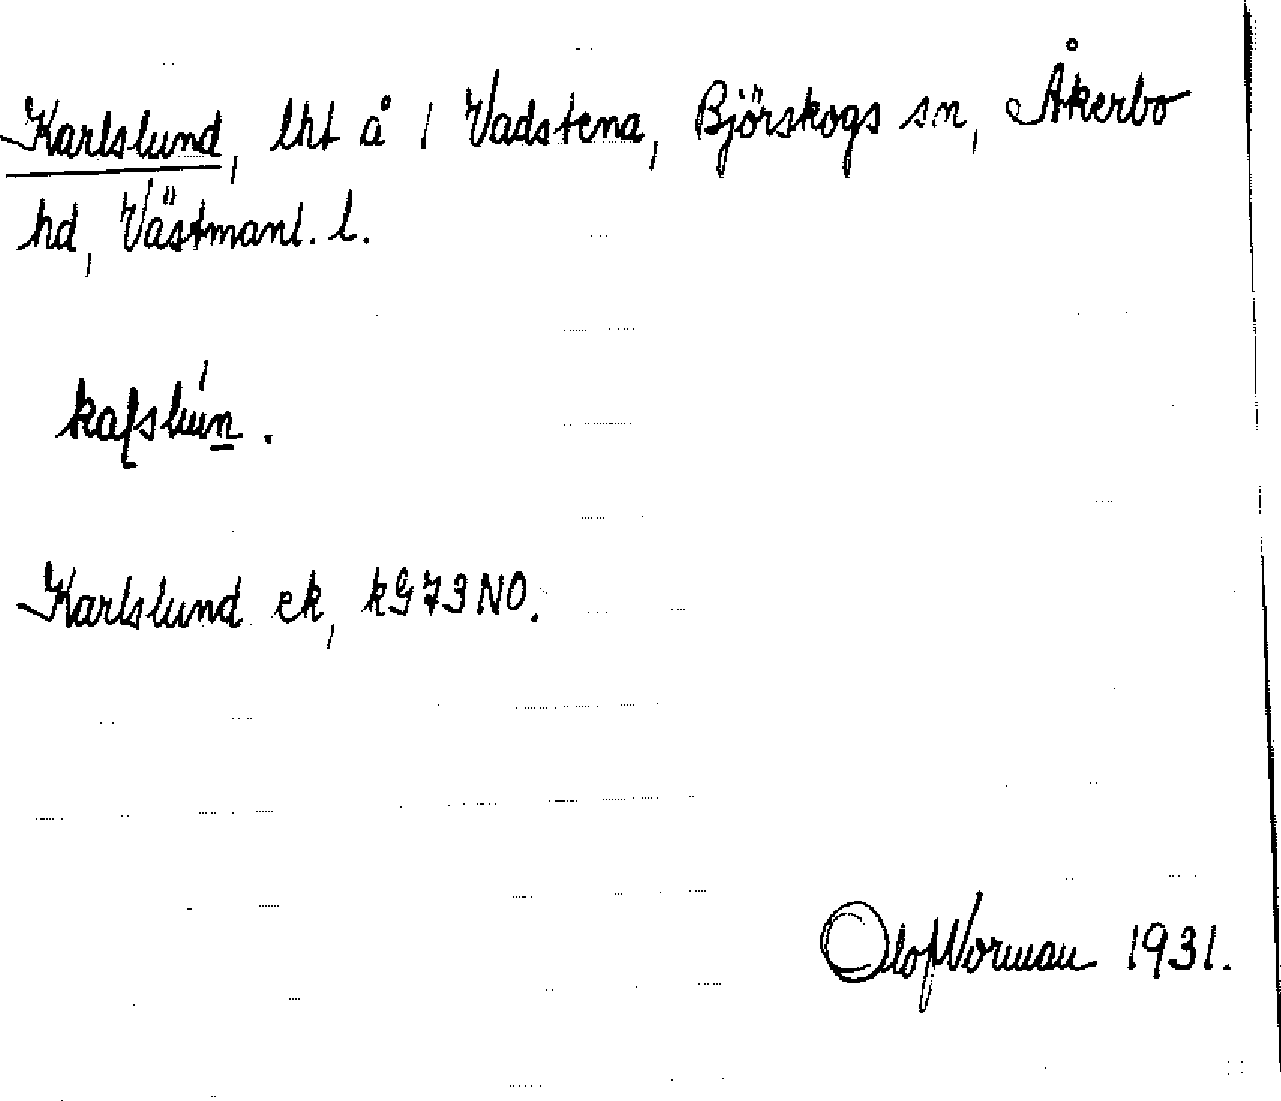 Karlslund, lht å 1 Vadstena, Björskogs sn, Åkerbo
hd, Västmanl. l.
Karlslund ek, kG73NO.
Olof Norman 1931.